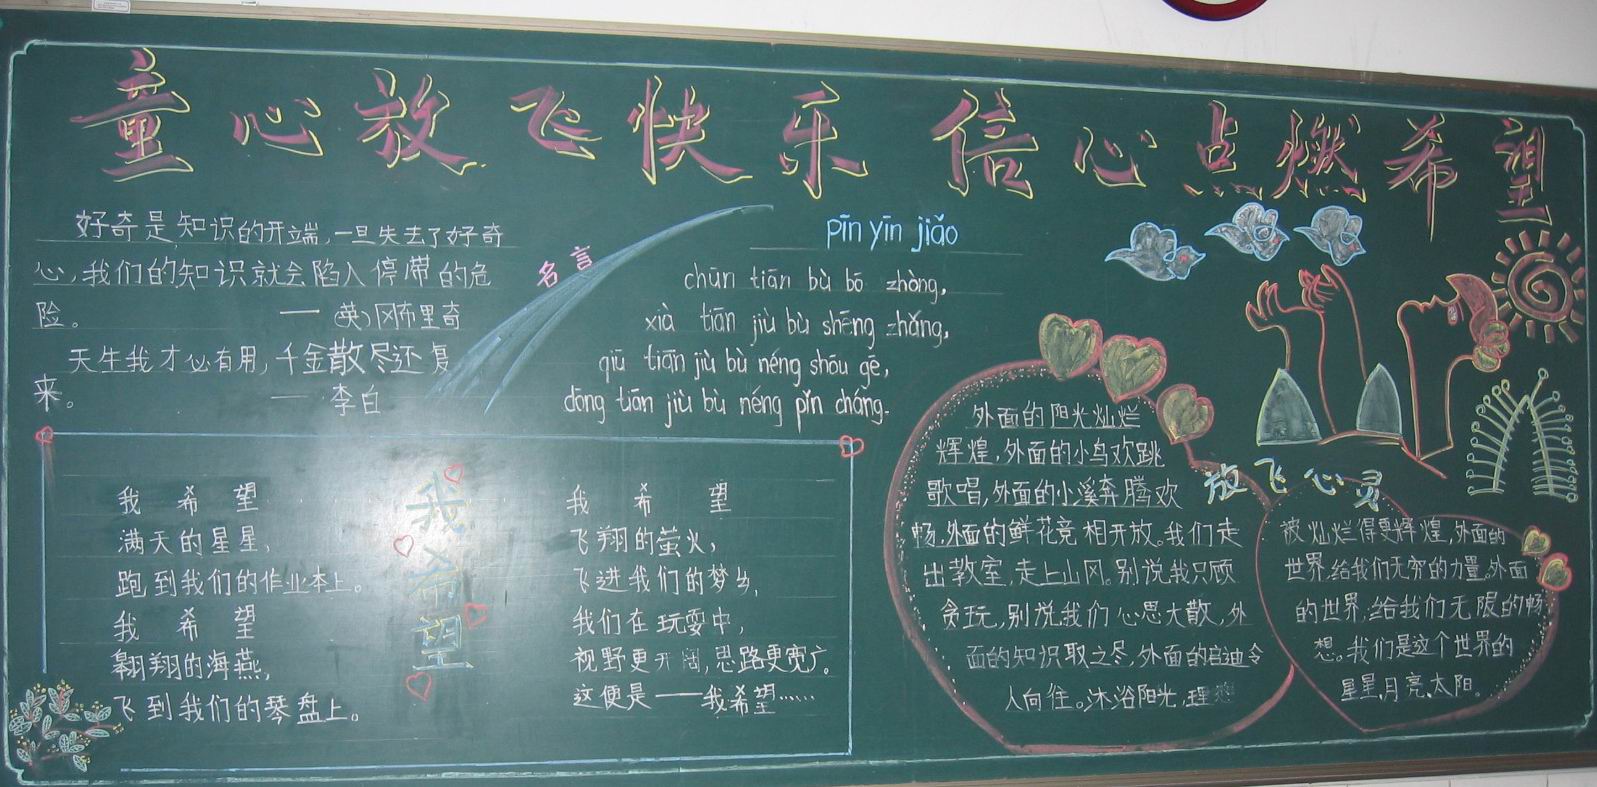 童心放飞快乐 信心点燃希望
好奇是知识的开端,一旦失去了好奇
心,我们的知识就会陷入停滞的危
险。 —(英)冈布里奇
天生我才必有用,千金散尽还复
来。 — 李白
名言
pīn yīn jiǎo
chūn tiān bù bō zhòng,
xià tiān jiù bù shēng zhǎng,
qiū tiān jiù bù néng shōu gē,
dōng tiān jiù bù néng pǐn cháng.
我希望
我 希 望
满天的星星,
跑到我们的作业本上。
我 希 望
翱翔的海燕,
飞到我们的琴盘上。
我 希 望
飞翔的萤火,
飞进我们的梦乡,
我们在玩耍中,
视野更开阔,思路更宽广。
这便是——我希望……
放飞心灵
外面的阳光灿烂
辉煌,外面的小鸟欢跳
歌唱,外面的小溪奔腾欢
畅,外面的鲜花竞相开放。我们走
出教室,走上山冈。别说我只顾
贪玩,别说我们心思大散,外
面的知识取之尽,外面的启迪令
人向往。沐浴阳光,理想
被灿烂得更辉煌,外面的
世界,给我们无穷的力量。外面
的世界,给我们无限的畅
想。我们是这个世界的
星星,月亮,太阳。